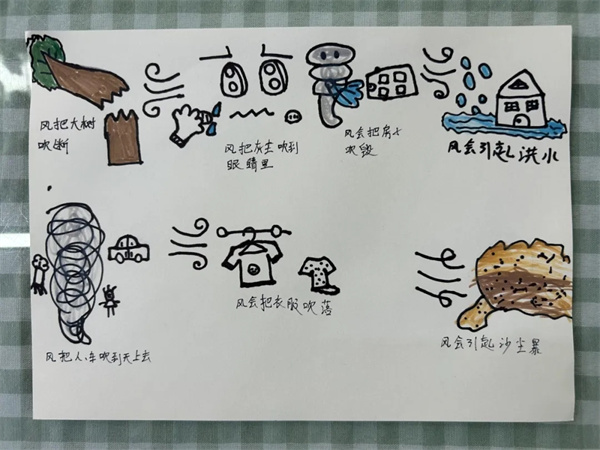 风把大树
吹断
风把灰尘吹到
眼睛里
风会把房子
吹毁
风会引起洪水
风把人、车吹到天上去
风会把衣服吹落
风会引起沙尘暴